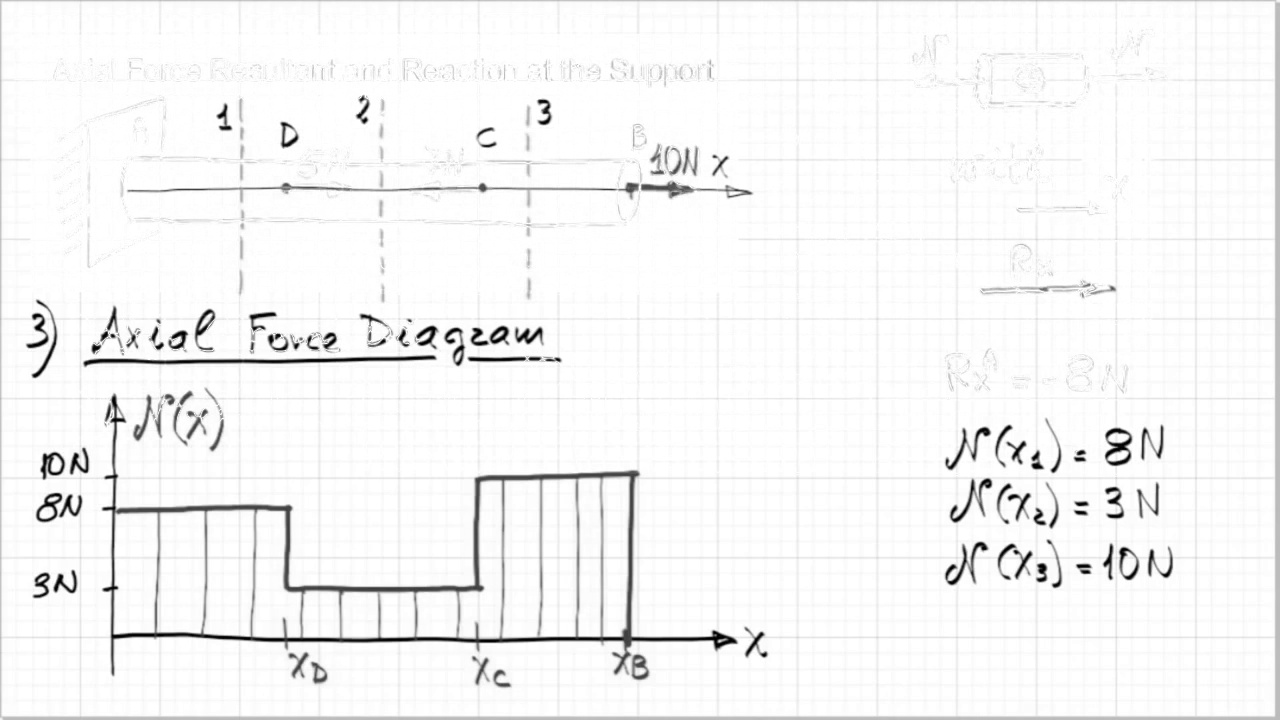 Axial Force Resultant and Reaction at the Support
N N
1 2 3
A D C B
5N 7N 10N x
with
x
Rx
3) Axial Force Diagram
N(x)
10N
8N
3N
xD xC xB x
RxA = -8N
N(x1) = 8N
N(x2) = 3N
N(x3) = 10N